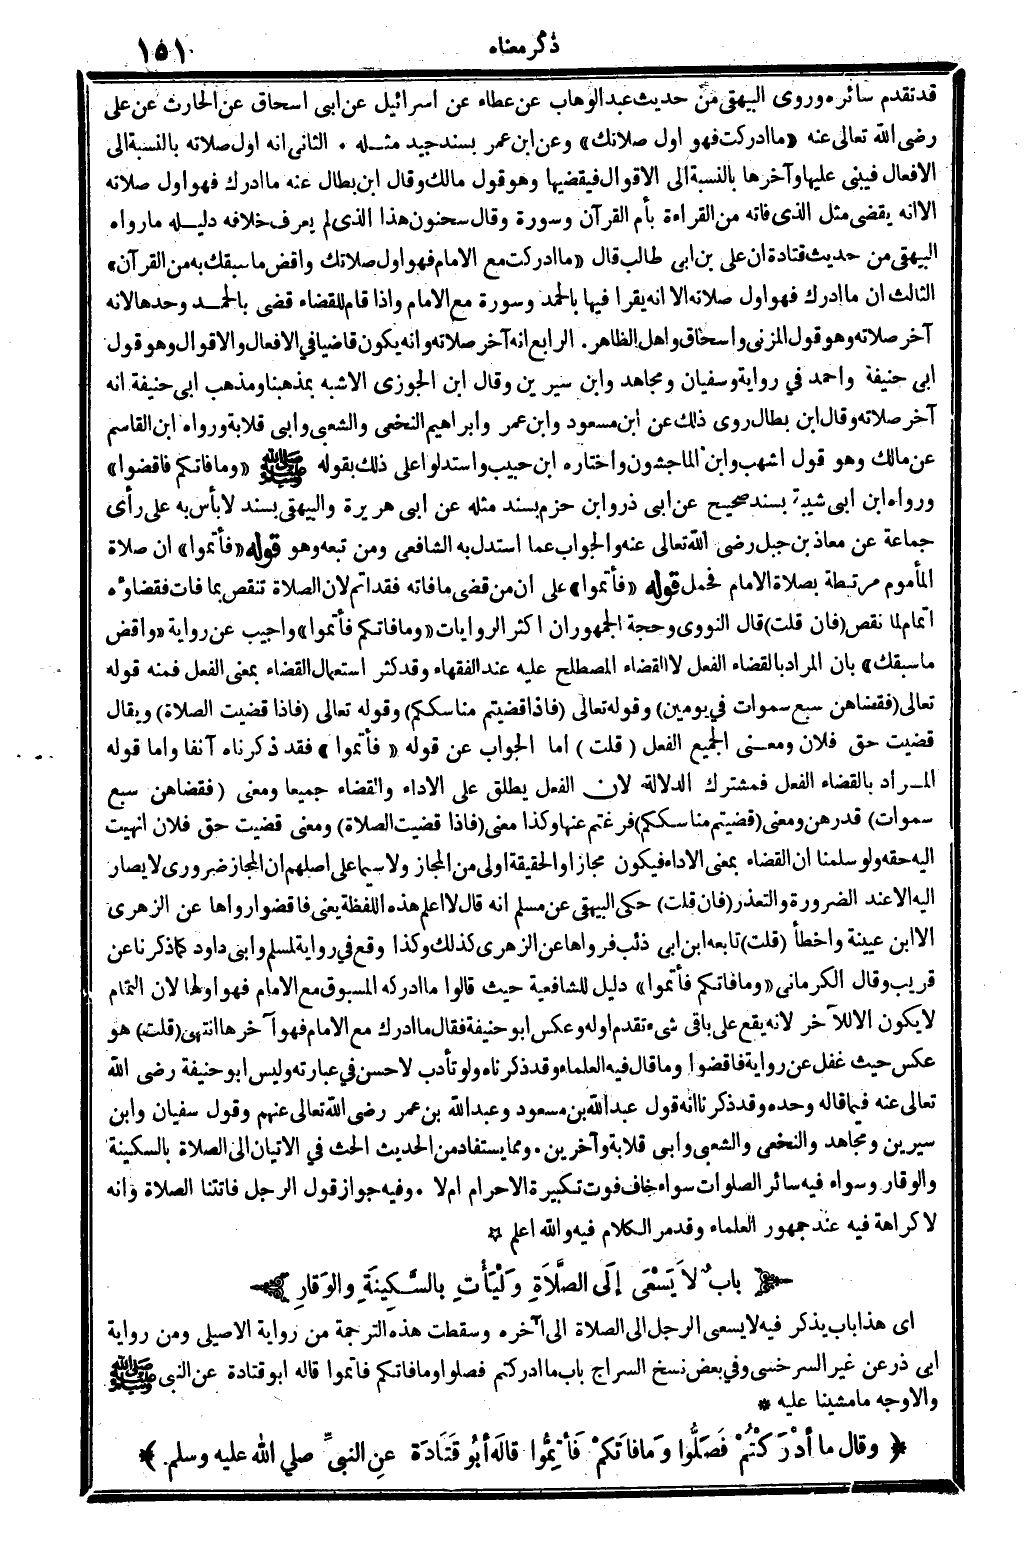 ذكر معناه
١٥١
قد تقدم سائره وروى البيهقي من حديث عبد الوهاب عن عطاء عن اسرائيل عن ابي اسحاق عن الحارث عن علي
رضي الله تعالى عنه «ما ادركت فهو اول صلاتك» وعن ابن عمر بسند جيد مثله . الثاني انه اول صلاته بالنسبة الى
الافعال فيبنى عليها وآخرها بالنسبة الى الاقوال فيقضيها وهو قول مالك وقال ابن بطال عنه ما ادرك فهو اول صلاته
الا انه يقضى مثل الذى فاته من القراءة بأم القرآن وسورة وقال سحنون هذا الذى لم يعرف خلافه دليله مارواه
البيهقي من حديث قتادة ان على بن ابى طالب قال «ما ادركت مع الامام فهو اول صلاتك واقض ما سبقك به من القرآن»
الثالث ان ما ادرك فهو اول صلاته الا انه يقرا فيها بالحمد وسورة مع الامام واذا قام للقضاء قضى بالحمد وحدها لانه
آخر صلاته وهو قول المزنى واسحاق واهل الظاهر . الرابع انه آخر صلاته وانه يكون قاضيا في الافعال والاقوال وهو قول
ابى حنيفة واحمد في رواية وسفيان ومجاهد وابن سيرين وقال ابن الجوزى الاشبه بمذهبنا ومذهب ابى حنيفة انه
آخر صلاته وقال ابن بطال روى ذلك عن ابن مسعود وابن عمر وابراهيم النخعى والشعبى وابى قلابة ورواه ابن القاسم
عن مالك وهو قول اشهب وابن الماجشون واختاره ابن حبيب واستدلوا على ذلك بقوله ﷺ «وما فاتكم فاقضوا»
ورواه ابن ابى شيبة بسند صحيح عن ابى ذر وابن حزم بسند مثله عن ابى هريرة والبيهقي بسند لا بأس به على رأى
جماعة عن معاذ بن جبل رضى الله تعالى عنه والجواب عما استدل به الشافعى ومن تبعه وهو قوله «فأتموا» ان صلاة
المأموم مرتبطة بصلاة الامام فحمل قوله «فأتموا» على ان من قضى ما فاته فقد اتم لان الصلاة تنقص بما فات فقضاؤه
اتمام لما نقص (فان قلت) قال النووى وحجة الجمهور ان اكثر الروايات «وما فاتكم فأتموا» واجيب عن رواية «واقض
ما سبقك» بان المراد بالقضاء الفعل لا القضاء المصطلح عليه عند الفقهاء وقد كثر استعمال القضاء بمعنى الفعل فمنه قوله
تعالى (فقضاهن سبع سموات في يومين) وقوله تعالى (فاذا قضيتم مناسككم) وقوله تعالى (فاذا قضيت الصلاة) ويقال
قضيت حق فلان ومعنى الجميع الفعل (قلت) اما الجواب عن قوله «فأتموا» فقد ذكرناه آنفا واما قوله
المراد بالقضاء الفعل فمشترك الدلالة لان الفعل يطلق على الاداء والقضاء جميعا ومعنى (فقضاهن سبع
سموات) قدرهن ومعنى (قضيتم مناسككم) فرغتم عنها وكذا معنى (فاذا قضيت الصلاة) ومعنى قضيت حق فلان انهيت
اليه حقه ولو سلمنا ان القضاء بمعنى الاداء فيكون مجازا والحقيقة اولى من المجاز ولا سيما على اصلهم ان المجاز ضرورى لا يصار
اليه الا عند الضرورة والتعذر (فان قلت) حكى البيهقي عن مسلم انه قال لا اعلم هذه اللفظة يعنى فاقضوا رواها عن الزهرى
الا ابن عيينة واخطأ (قلت) تابعه ابن ابى ذئب فرواها عن الزهرى كذلك وكذا وقع في رواية لمسلم وابى داود كما ذكرنا عن
قريب وقال الكرمانى «وما فاتكم فأتموا» دليل للشافعية حيث قالوا ما ادركه المسبوق مع الامام فهو اولها لان التمام
لا يكون الا للآخر لانه يقع على باقى شىء تقدم اوله وعكس ابو حنيفة فقال ما ادرك مع الامام فهو آخرها انتهى (قلت) هو
عكس حيث غفل عن رواية فاقضوا وما قال فيه العلماء وقد ذكرناه ولو تأدب لاحسن في عبارته وليس ابو حنيفة رضى الله
تعالى عنه فيما قاله وحده وقد ذكرنا انه قول عبد الله بن مسعود وعبد الله بن عمر رضى الله تعالى عنهم وقول سفيان وابن
سيرين ومجاهد والنخعى والشعبى وابى قلابة وآخرين . ومما يستفاد من الحديث الحث في الاتيان الى الصلاة بالسكينة
والوقار وسواء فيه سائر الصلوات سواء خاف فوت تكبيرة الاحرام ام لا . وفيه جواز قول الرجل فاتتنا الصلاة وانه
لا كراهة فيه عند جمهور العلماء وقد مر الكلام فيه والله اعلم ☆
بابٌ لَا يَسْعَى إِلَى الصَّلَاةِ وَلْيَأْتِ بِالسَّكِينَةِ والوَقَارِ
اى هذا باب يذكر فيه لا يسعى الرجل الى الصلاة الى آخره وسقطت هذه الترجمة من رواية الاصيلى ومن رواية
ابى ذر عن غير السرخسى وفى بعض نسخ السراج باب ما ادركتم فصلوا وما فاتكم فاتموا قاله ابو قتادة عن النبى ﷺ
والاوجه ما مشينا عليه *
﴿ وقال ما أدْرَكْتُمْ فَصَلُّوا وَمَا فَاتَكُمْ فَأتِمُّوا قالَهُ أبُو قَتَادَةَ عنِ النبيِّ صلي الله عليه وسلم . ﴾*